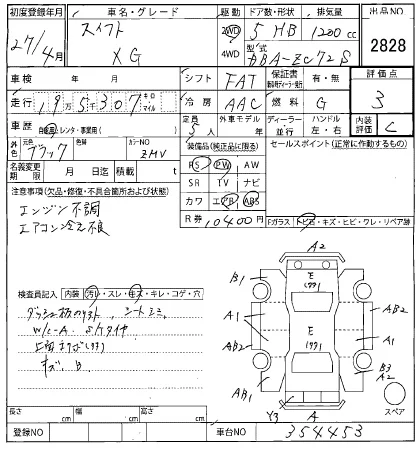 初度登録年月 車名・グレード 駆動 ドア数・形状 排気量 出品NO
27/4月 スイフト XG 2WD 4WD 5 HB 1200cc 2828
型式 DBA-ZC72S
車検 年 月 シフト FAT 保証書 有・無 評価点
走行 19万5千307キロ マイル 冷房 AAC 燃料 G 3
車歴 自家用・レンタ・事業用( ) 定員 5人 外車モデル 年 ディーラー 並行 ハンドル 左・右 内装評価 C
外色 元色 ブラック 色替 カラーNO ZMV 装備品(純正品に限る) セールスポイント(正常に作動するもの)
名義変更期限 月 日迄 抹消 月 PS PW AW
注意事項(欠品・修復・不具合箇所および状態) SR TV ナビ
エンジン不調 カワ エアB ABS
エアコン冷え不良 R券 10400円
Fガラス トビ石・キズ・ヒビ・ワレ・リペア跡
A2
検査員記入 内装 汚れ・スレ・キズ・キリ・コゲ・穴 B1 E(991)
シートシミ A1 E(991) AB2
W/L-A スタタイヤ AB2 A1
キズ B AB1 B3 A2
スペア
長さ cm 幅 cm 高さ cm Y3 A
登録NO 車台NO 354453